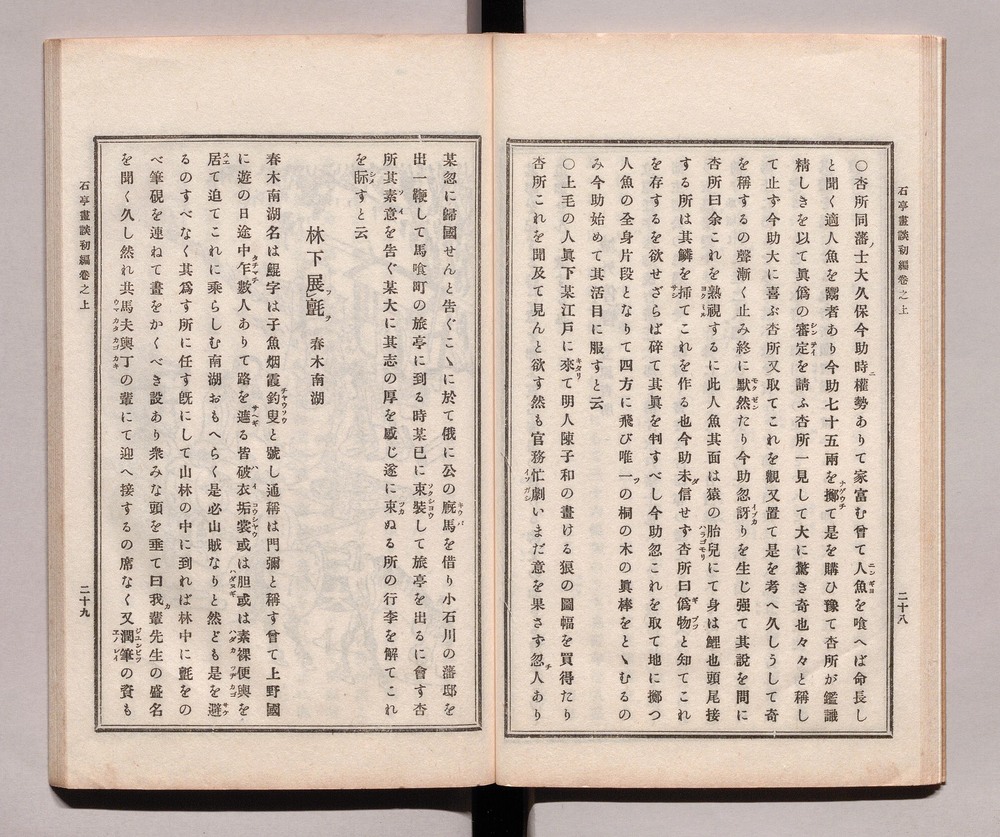 石亭畫談初編卷之上
二十八
〇杏所同藩ノ士大久保今助時ニ權勢ありて家富む曾て人魚を喰へば命長し
と聞く適人魚を鬻者あり今助七十五兩を擲て是を購ひ豫て杏所が鑑識
精しきを以て眞僞の審定を請ふ杏所一見して大に驚き奇也々々と稱し
て止す今助大に喜ぶ杏所又取てこれを觀又置て是を考へ久しうして奇
を稱するの聲漸く止み終に默然たり今助忽訝りを生じ强て其說を問に
杏所曰余これを熟視するに此人魚其面は猿の胎兒にて身は鯉也頭尾接
する所は其鱗を揷てこれを作る也今助未信せす杏所曰僞物と知てこれ
を存するを欲せざらば碎て其眞を判すべし今助忽これを取て地に擲つ
人魚の全身片段となりて四方に飛び唯一つの桐の木の眞棒をとゝむるの
み今助始めて其活目に服すと云
〇上毛の人眞下某江戸に來て明人陳子和の畫ける狼の圖幅を買得たり
杏所これを聞及て見んと欲す然も官務忙劇いまだ意を果さず忽チ人あり
某忽に歸國せんと告ぐこゝに於て俄に公の廐馬を借り小石川の藩邸を
出一鞭して馬喰町の旅亭に到る時某已に束裝して旅亭を出るに會す杏
所其素意を告ぐ某大に其志の厚を感じ遂に束ぬる所の行李を解てこれ
を眎すと云
林下展氈 春木南湖
春木南湖名は鯤字は子魚烟霞釣叟と號し通稱は門彌と稱す曾て上野國
に遊の日途中乍數人ありて路を遮る皆破衣垢裳或は胆或は素裸便輿を
居て迫てこれに乘らしむ南湖おもへらく是必山賊なりと然ども是を避
るのすべなく其爲す所に任す旣にして山林の中に到れば林中に氈をの
べ筆硯を連ねて畫をかくべき設あり衆みな頭を垂て曰我輩先生の盛名
を聞く久し然れ共馬夫輿丁の輩にて迎へ接するの席なく又潤筆の資も
石亭畫談初編卷之上
二十九